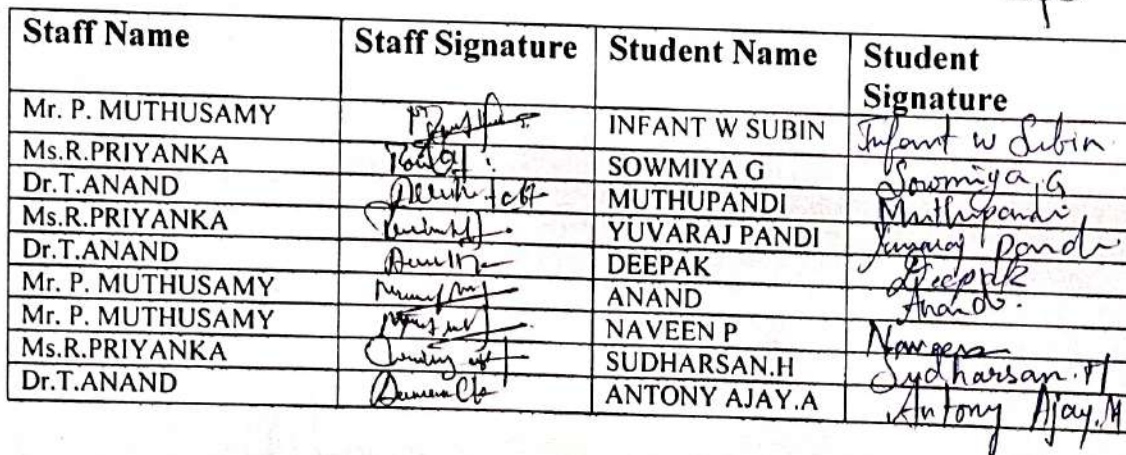 Staff Name Staff Signature Student Name Student
Signature
Mr. P. MUTHUSAMY INFANT W SUBIN Infant W Subin
Ms.R.PRIYANKA SOWMIYA G Sowmiya.G
Dr.T.ANAND MUTHUPANDI Muthupandi
Ms.R.PRIYANKA YUVARAJ PANDI Yuvaraj Pandi
Dr.T.ANAND DEEPAK Deepak
Mr. P. MUTHUSAMY ANAND Anand.
Mr. P. MUTHUSAMY NAVEEN P
Ms.R.PRIYANKA SUDHARSAN.H Sudharsan.H
Dr.T.ANAND ANTONY AJAY.A Antony Ajay.M